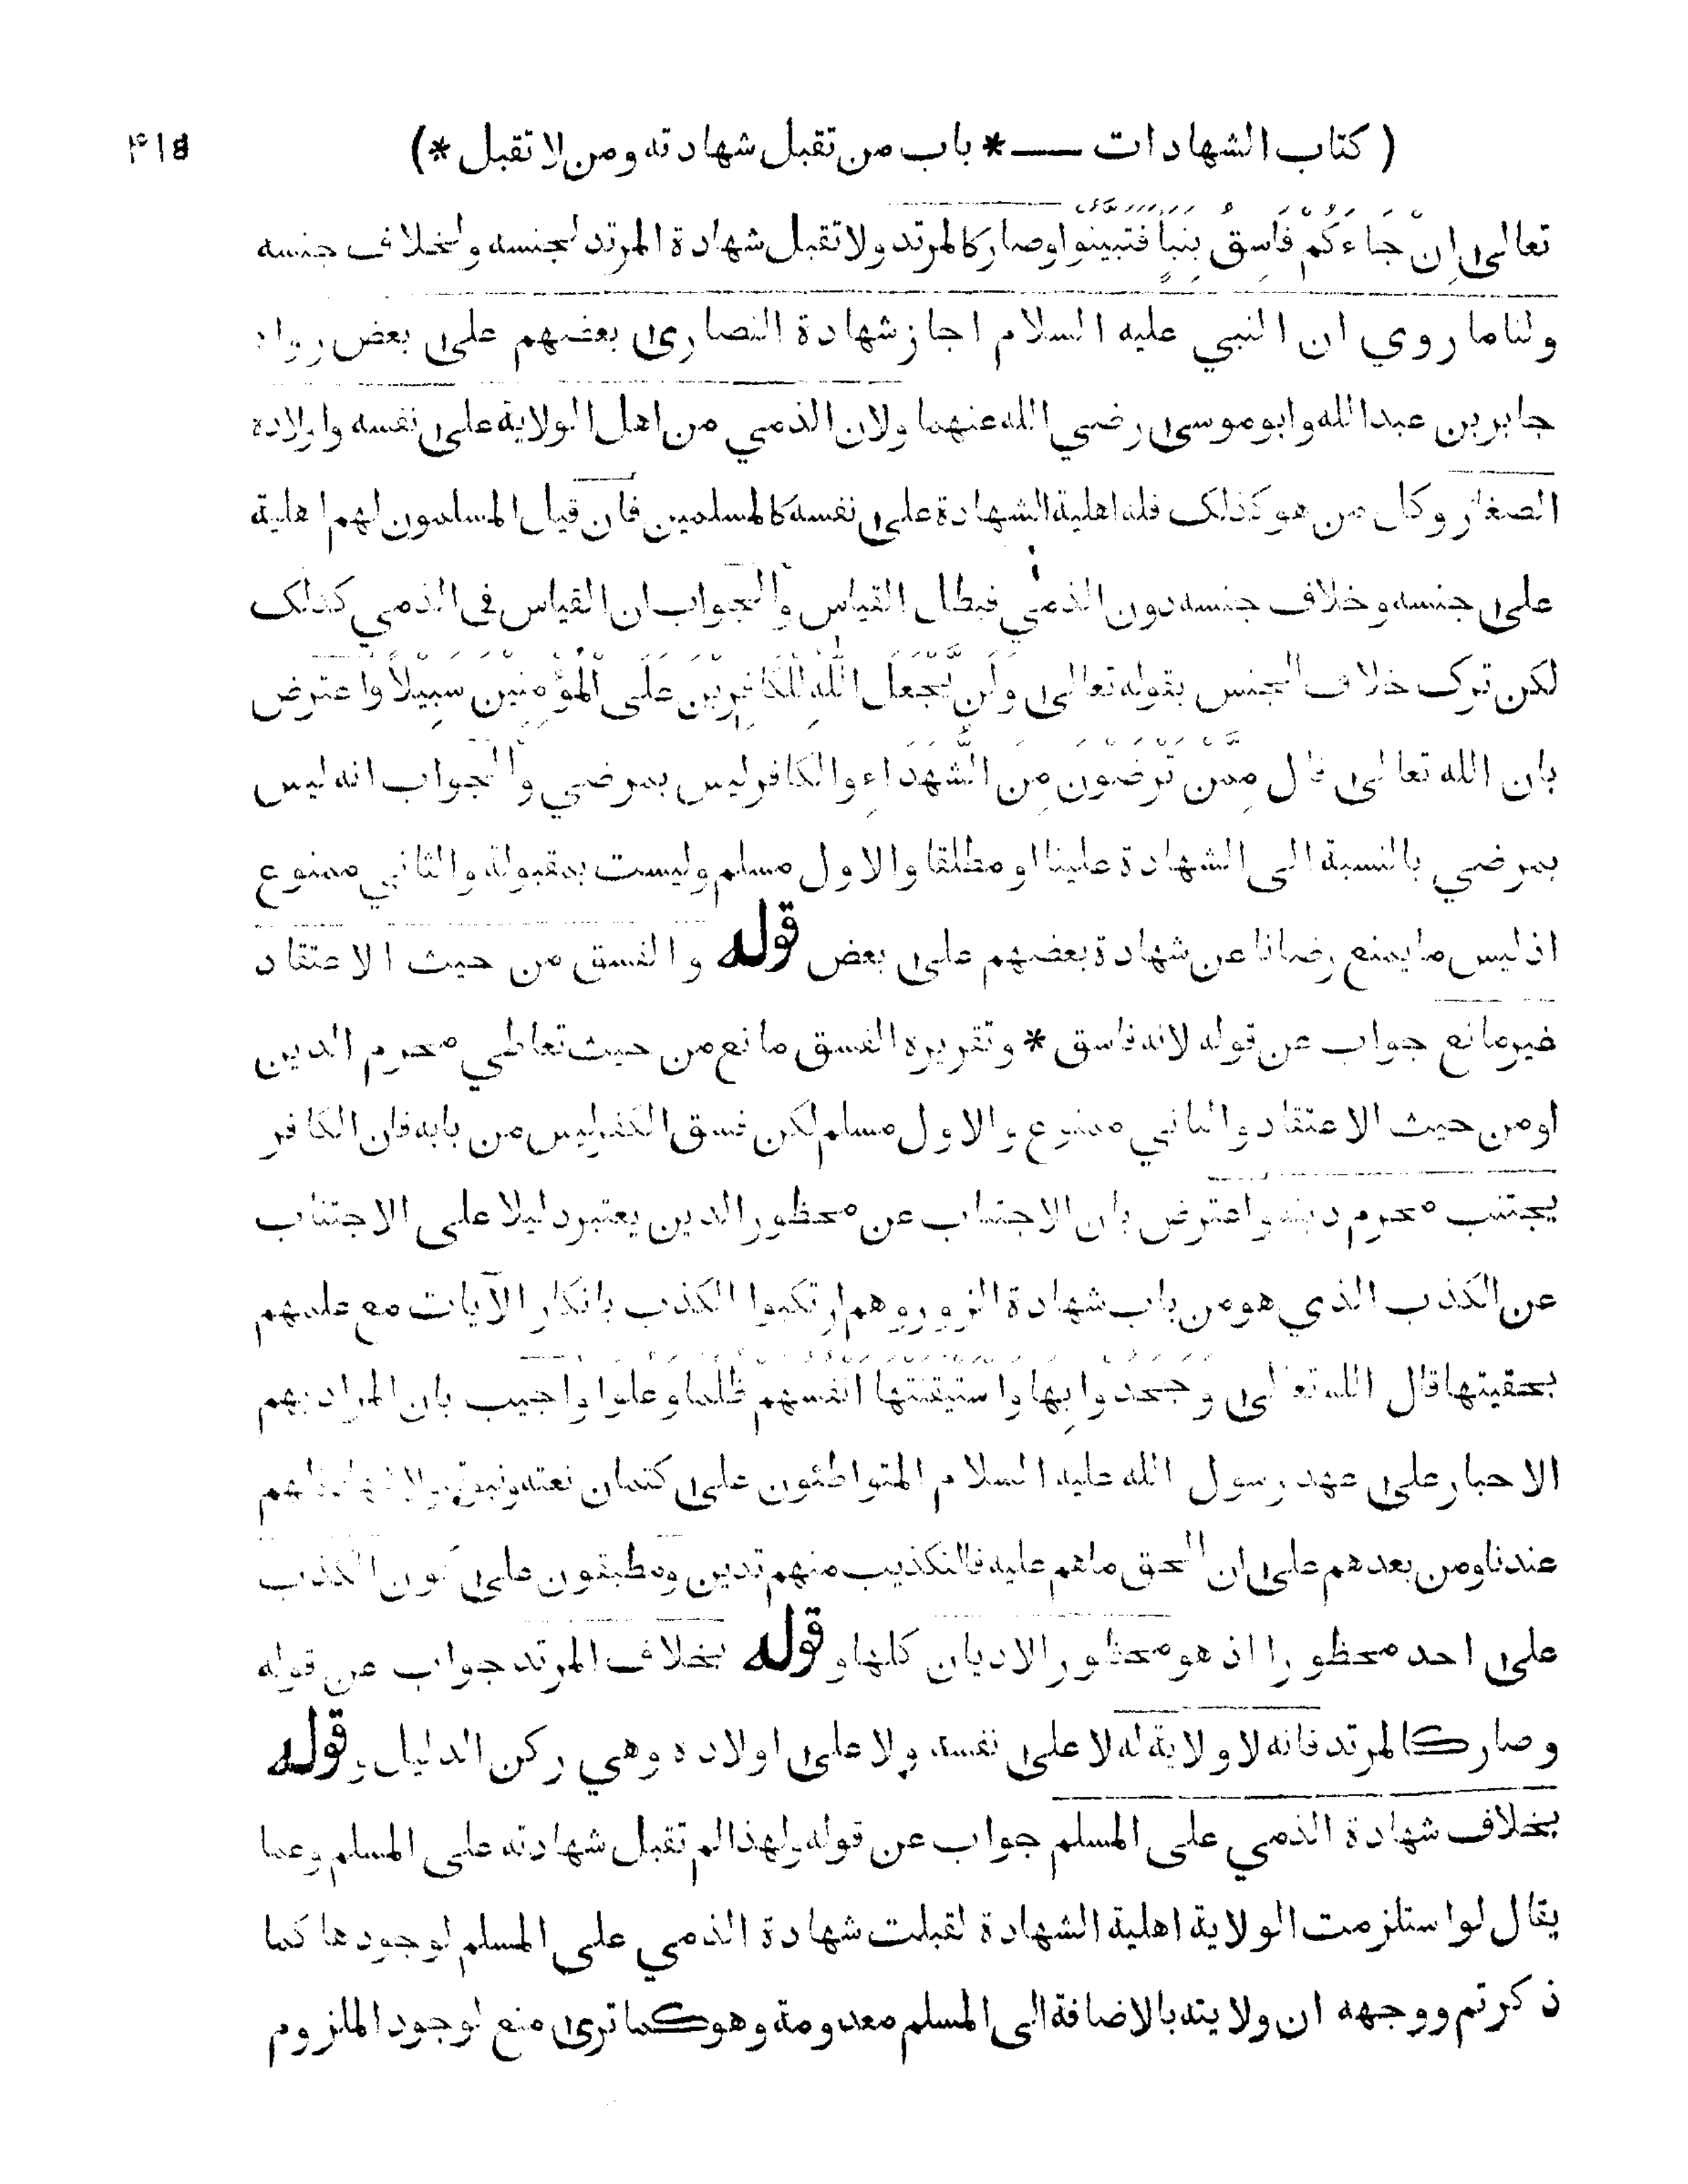 ( كتاب الشهادات — * باب من تقبل شهادته ومن لا تقبل * ) ۴۱۵
تعالى إِنْ جَاءَكُمْ فَاسِقٌ بِنَبَأٍ فَتَبَيَّنُوا وصار كالمرتد ولا تقبل شهادة المرتد لجنسه ولخلاف جنسه
ولنا ما روي ان النبي عليه السلام اجاز شهادة النصارى بعضهم على بعض رواه
جابر بن عبد الله وابو موسى رضي الله عنهما ولان الذمي من اهل الولاية على نفسه واولاده
الصغار وكل من هو كذلك فله اهلية الشهادة على نفسه كالمسلمين فان قيل المسلمون لهم اهلية
على جنسه وخلاف جنسه دون الذمي فبطل القياس والجواب ان القياس في الذمي كذلك
لكن ترك خلاف الجنس بقوله تعالى وَلَن يَّجْعَلَ اللّٰهُ لِلْكَافِرِيْنَ عَلَى الْمُؤْمِنِيْنَ سَبِيْلاً واعترض
بان الله تعالى قال مِمَّنْ تَرْضَوْنَ مِنَ الشُّهَدَاءِ والكافر ليس بمرضي والجواب انه ليس
بمرضي بالنسبة الى الشهادة علينا او مطلقا والاول مسلم وليست بمقبولة والثاني ممنوع
اذ ليس ما يمنع رضانا عن شهادة بعضهم على بعض قوله والفسق من حيث الاعتقاد
غير مانع جواب عن قوله لانه فاسق * وتقريره الفسق مانع من حيث تعاطي محرم الدين
او من حيث الاعتقاد والثاني ممنوع والاول مسلم لكن فسق الكفر ليس من بابه فان الكافر
يجتنب محرم دينه واعترض بان الاجتناب عن محظور الدين يعتبر دليلا على الاجتناب
عن الكذب الذي هو من باب شهادة الزور وهم ارتكبوا الكذب بانكار الآيات مع علمهم
بحقيتها قال الله تعالى وَجَحَدُوا بِهَا وَاسْتَيْقَنَتْهَا أَنْفُسُهُمْ ظُلْمًا وَعُلُوًّا واجيب بان المراد بهم
الاحبار على عهد رسول الله عليه السلام المتواطئون على كتمان نعته ونبوته ولا شهادة لهم
عندنا ومن بعدهم على ان الحق ما هم عليه فالتكذيب منهم تدين ومطبقون على كون الكذب
على احد محظورا اذ هو محظور الاديان كلها و قوله بخلاف المرتد جواب عن قوله
وصار كالمرتد فانه لا ولاية له لا على نفسه ولا على اولاده وهي ركن الدليل و قوله
بخلاف شهادة الذمي على المسلم جواب عن قوله ولهذا لم تقبل شهادته على المسلم وعما
يقال لو استلزمت الولاية اهلية الشهادة لقبلت شهادة الذمي على المسلم لوجودها كما
ذكرتم ووجهه ان ولايته بالاضافة الى المسلم معدومة وهو كما ترى منع لوجود الملزوم